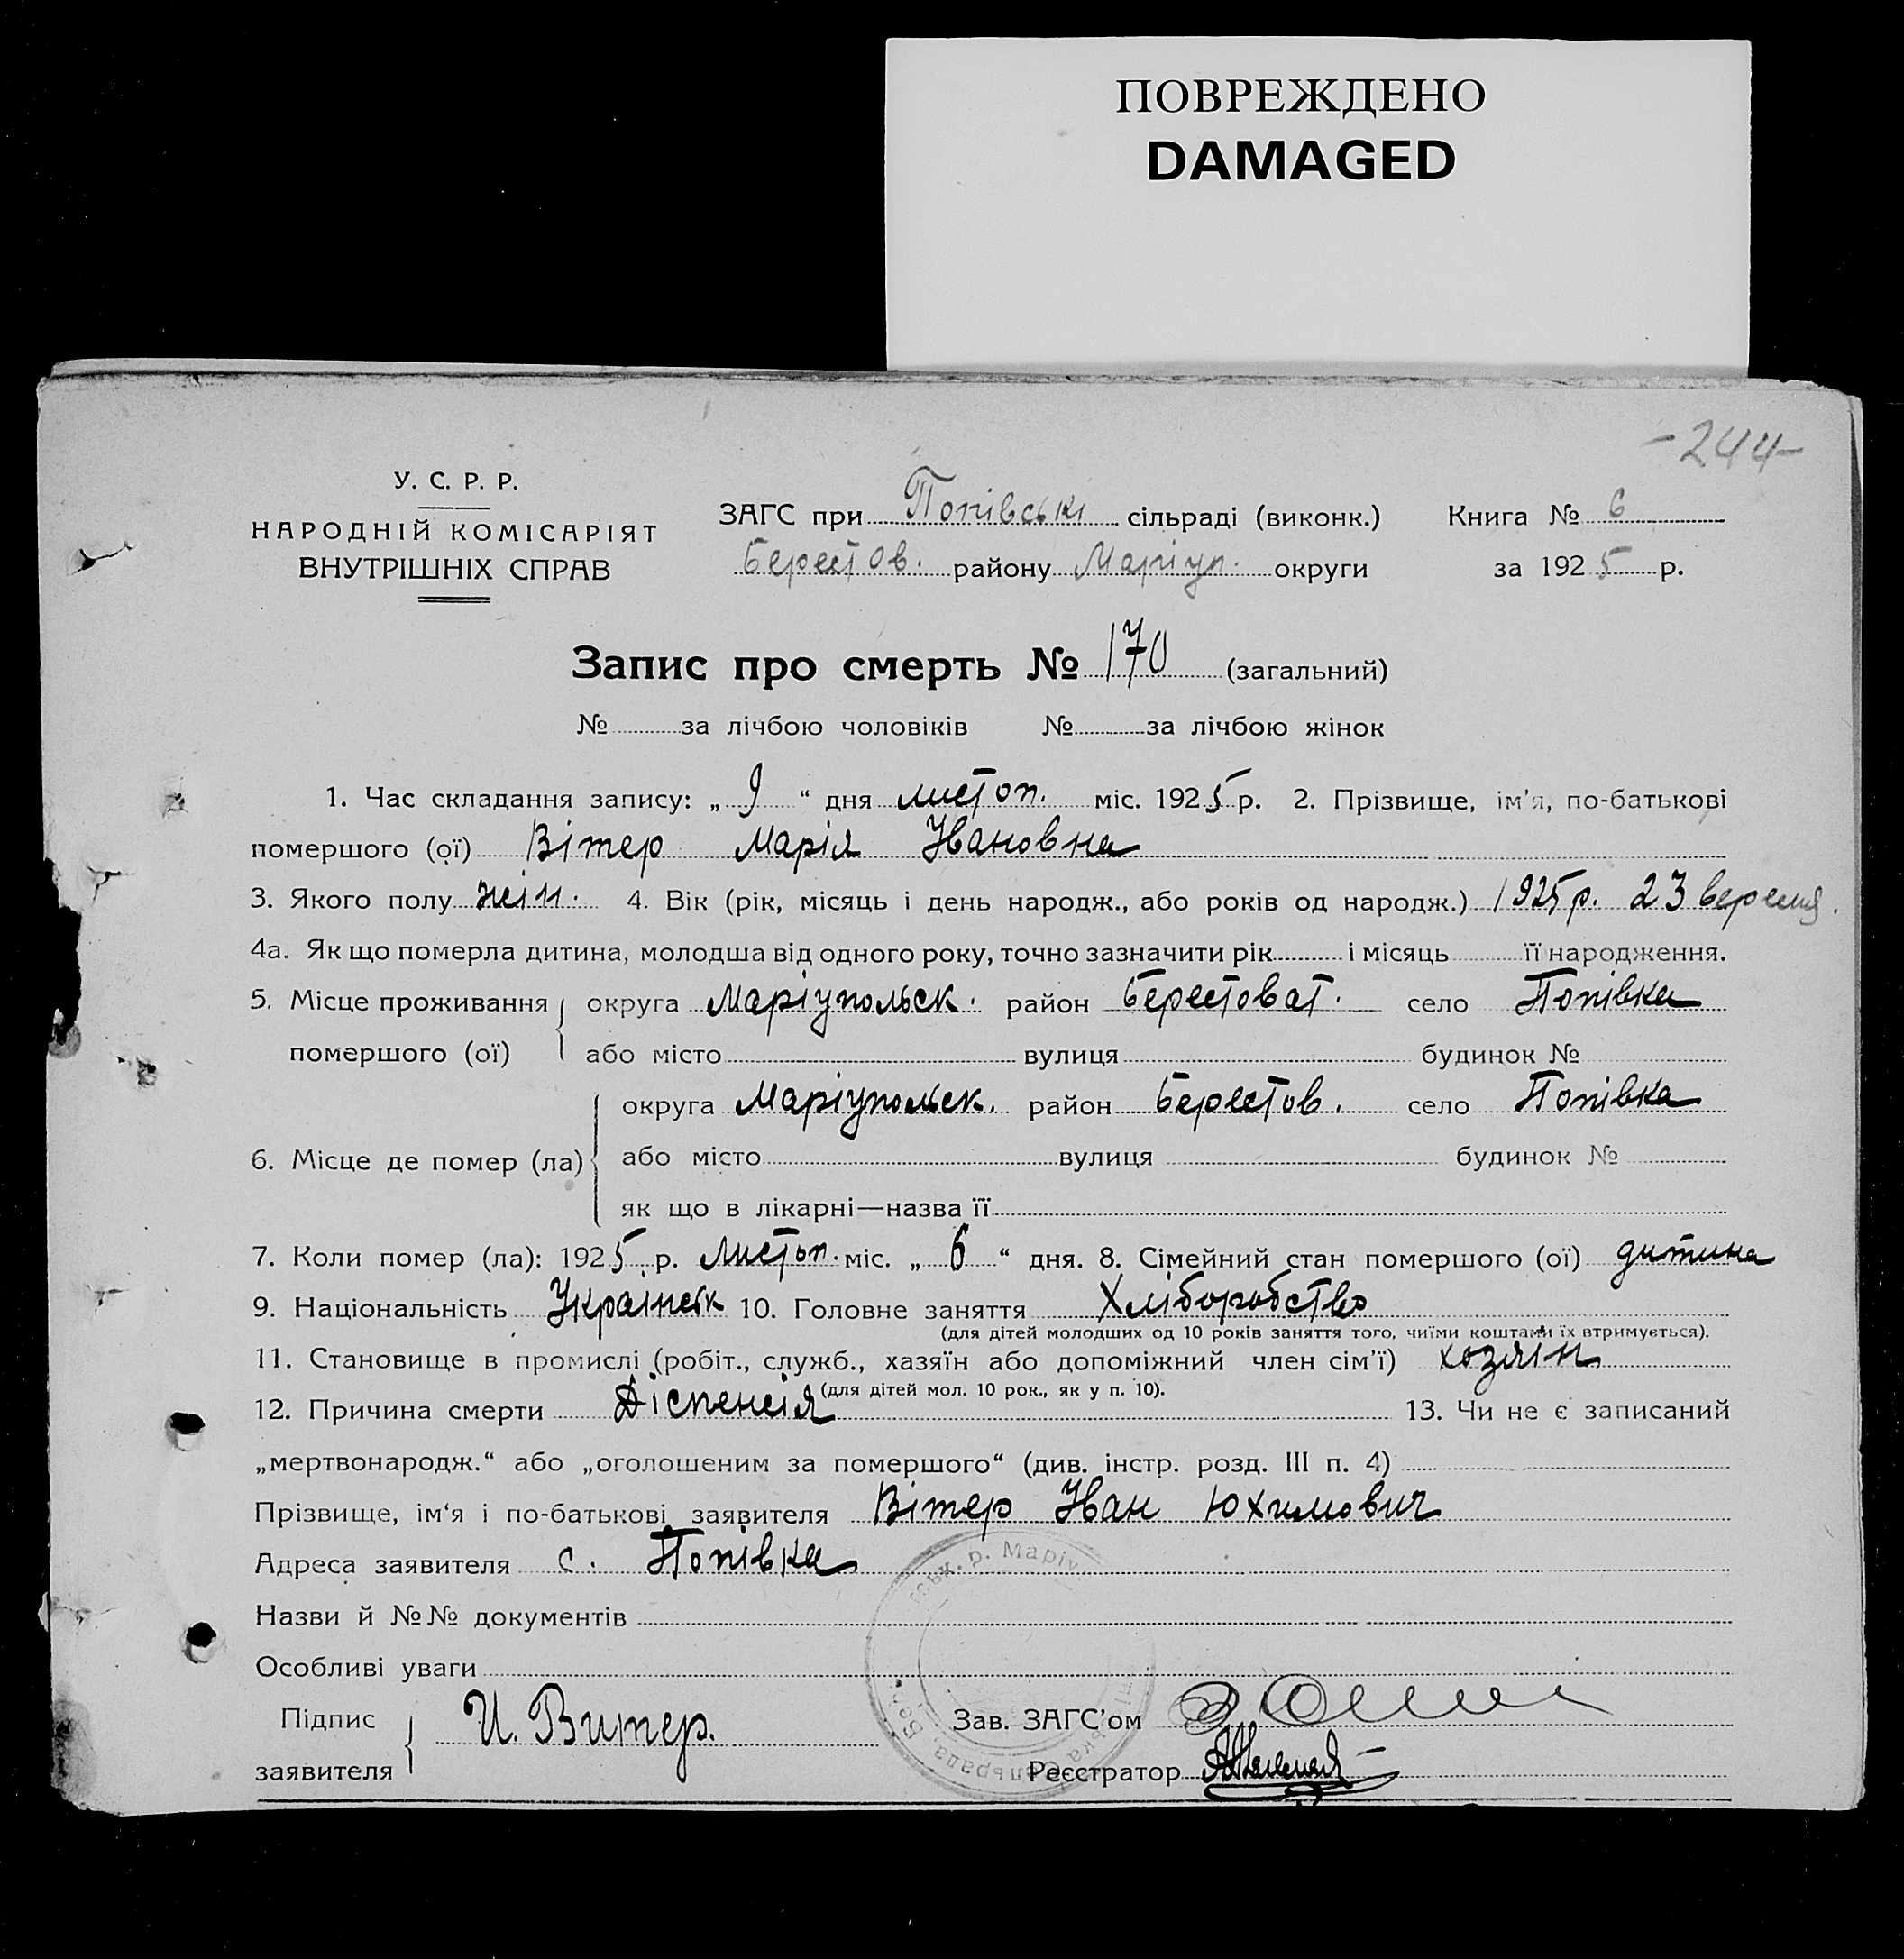 ПОВРЕЖДЕНО
DAMAGED
-244-
У. С. Р. Р.
НАРОДНІЙ КОМІСАРІЯТ
ВНУТРІШНІХ СПРАВ
ЗАГС при Попівські сільраді (виконк.) Книга № 6
Берестов. району Маріуп. округи за 1925 р.
Запис про смерть № 170 (загальний)
№ за лічбою чоловіків № за лічбою жінок
1. Час складання запису: „ 9 “ дня листоп. міс. 1925 р. 2. Прізвище, ім'я, по-батькові
помершого (ої) Вітер Марія Ивановна
3. Якого полу жін. 4. Вік (рік, місяць і день народж., або років од народж.) 1925 р. 23 вересня.
4а. Як що померла дитина, молодша від одного року, точно зазначити рік і місяць її народження.
5. Місце проживання округа Маріупольск. район Берестоват. село Попівка
помершого (ої) або місто вулиця будинок №
округа Маріупольск. район Берестов. село Попівка
6. Місце де помер (ла) або місто вулиця будинок №
як що в лікарні—назва її
7. Коли помер (ла): 1925 р. Листоп. міс. „ 6 “ дня. 8. Сімейний стан помершого (ої) дитина
9. Національність Українськ 10. Головне заняття Хліборобство
(для дітей молодших од 10 років заняття того, чиїми коштами їх втримується).
11. Становище в промислі (робіт., служб., хазяїн або допоміжний член сім'ї) хозяїн
(для дітей мол. 10 рок., як у п. 10).
12. Причина смерти Діспенсія 13. Чи не є записаний
„мертвонародж.“ або „оголошеним за помершого“ (див. інстр. розд. III п. 4)
Прізвище, ім'я і по-батькові заявителя Вітер Иван Юхимович
Адреса заявителя с. Попівка
Назви й №№ документів
Особливі уваги
Підпис
заявителя И. Витер.
Зав. ЗАГС'ом
Реєстратор
ськ. р. Маріу